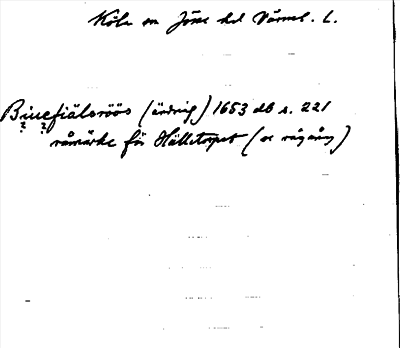 Köla sn Jösse hd Värml. L.
Biuefiälsröös (ändrig) 1653 db s. 221
? ?
råmärke för Hälletorpet (se rågång)